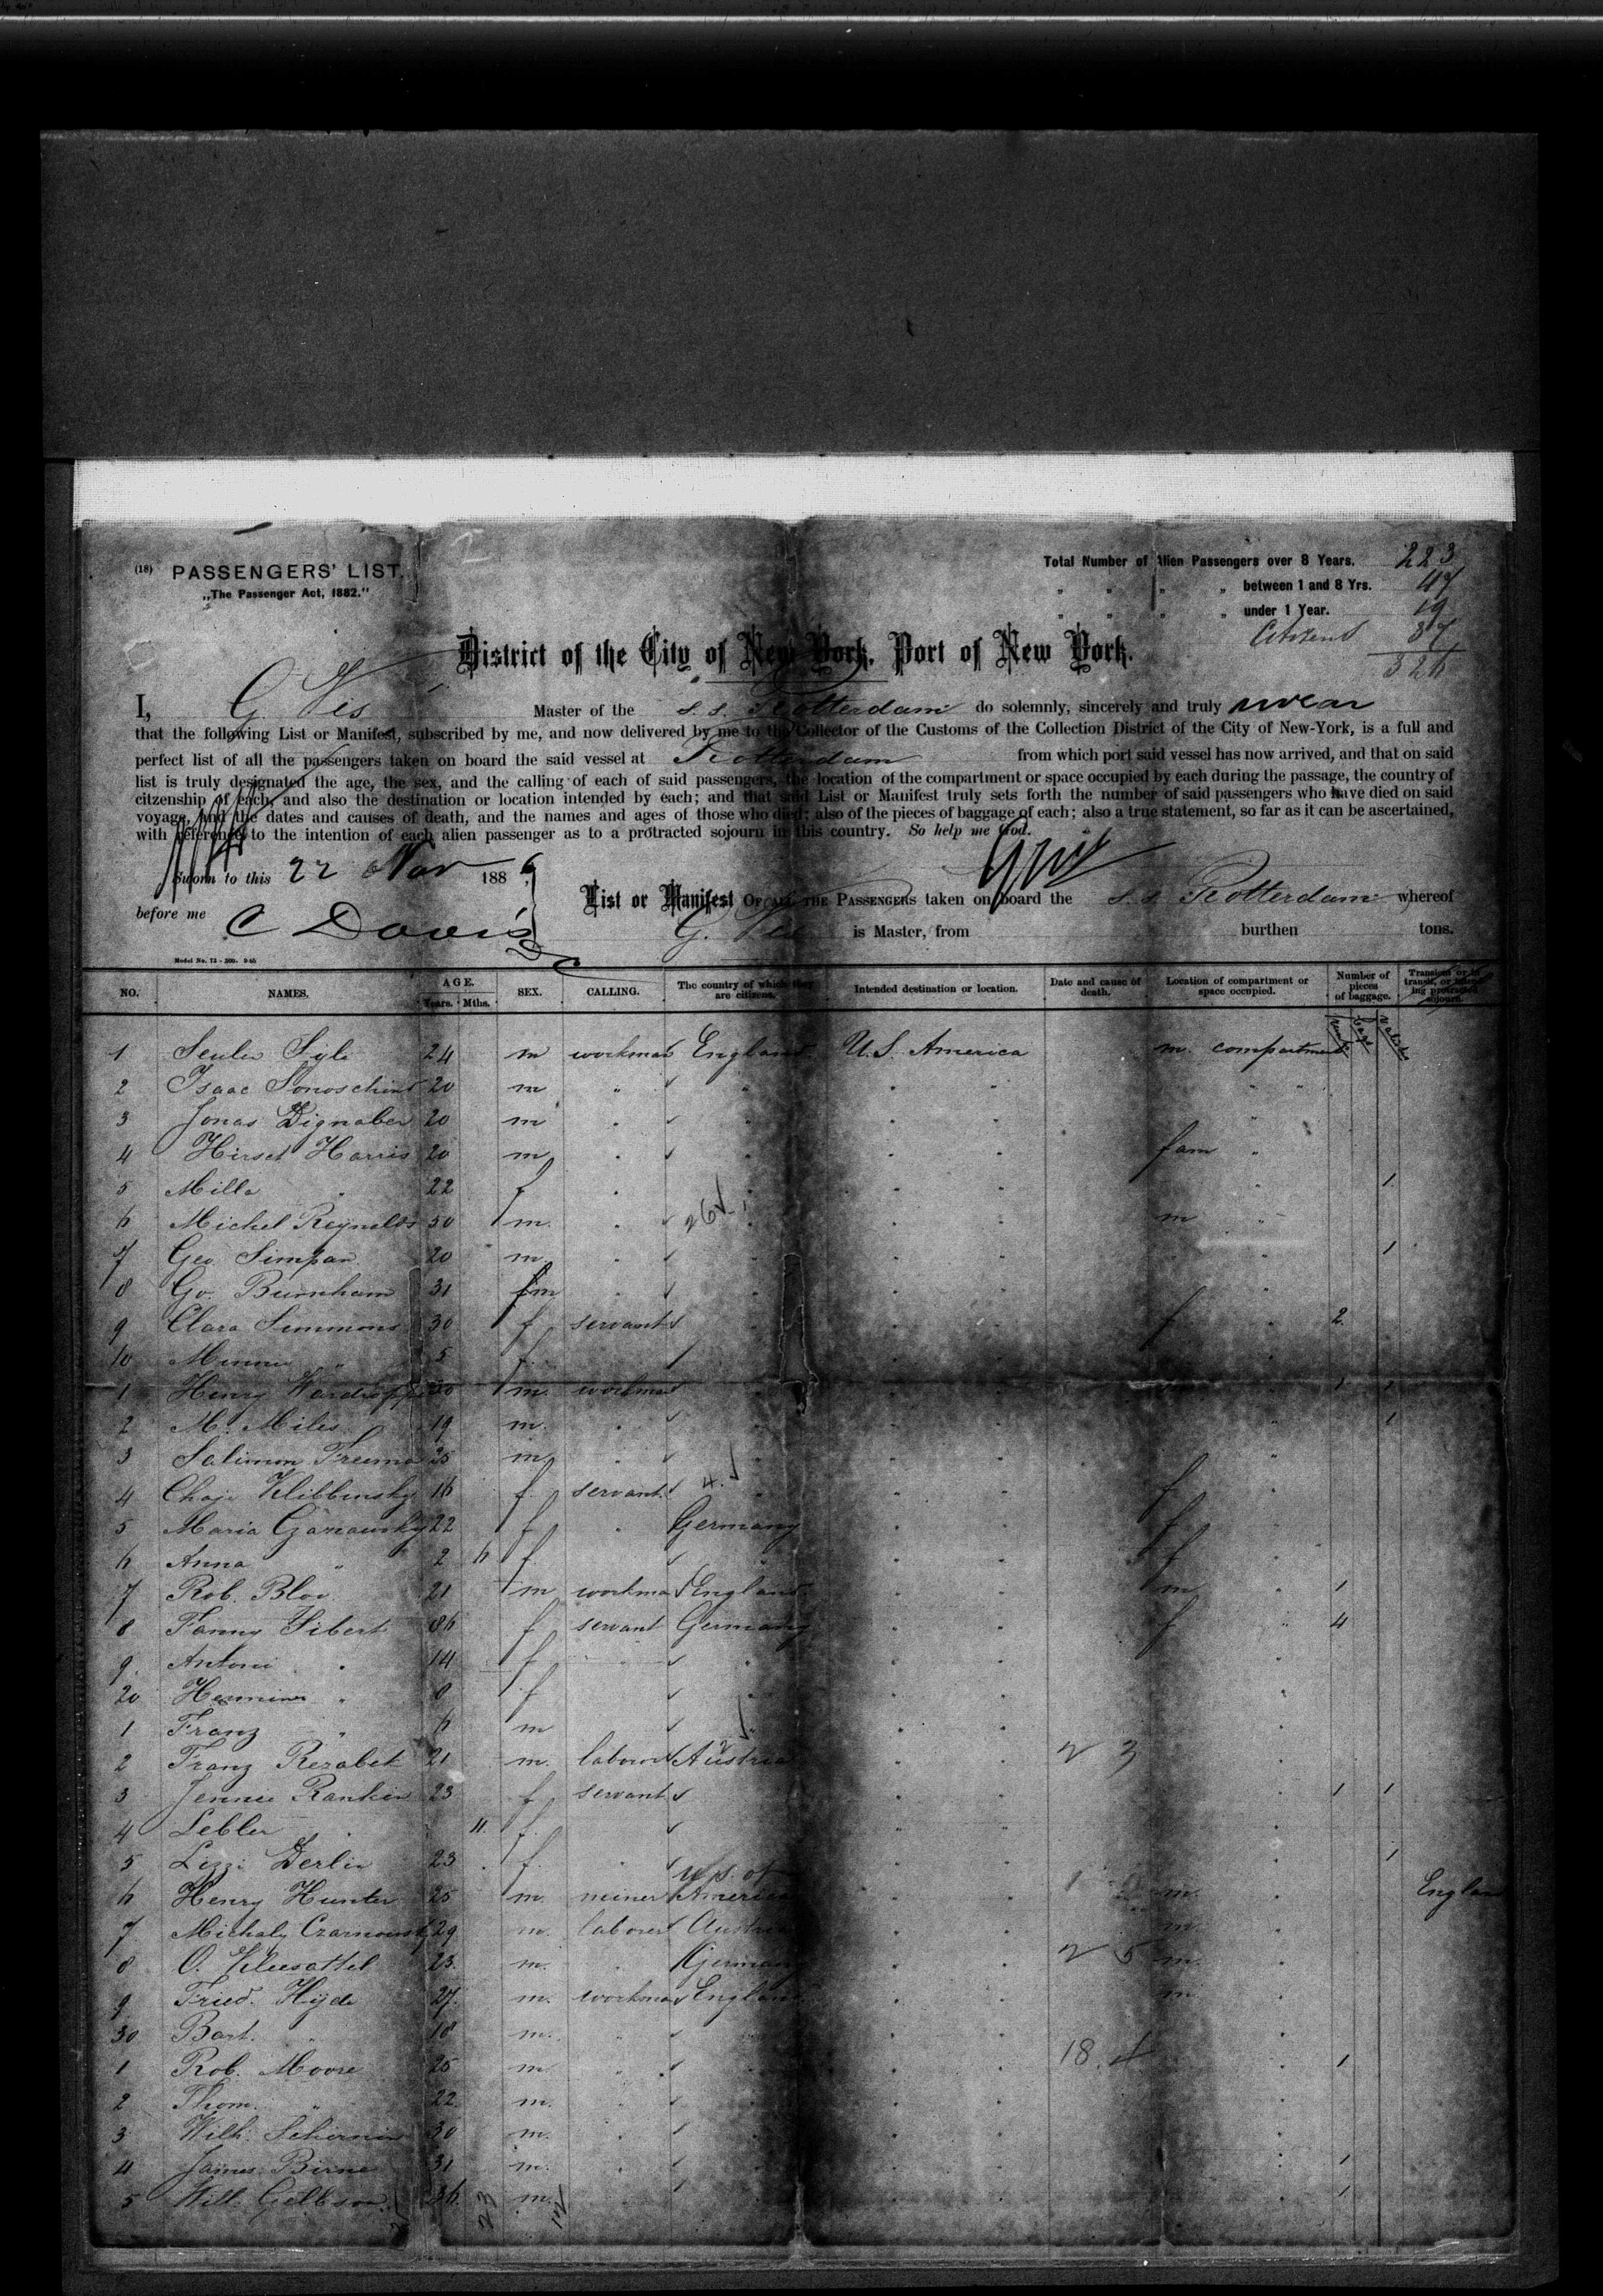 2
(18) PASSENGERS' LIST.
„The Passenger Act, 1882."
Total Number of Alien Passengers over 8 Years. 223
„ „ „ „ between 1 and 8 Yrs. 47
„ „ „ „ under 1 Year. 19
Citizens 37
326
District of the City of New York, Port of New York.
I, G. Vis Master of the s.s. Rotterdam do solemnly, sincerely and truly swear
that the following List or Manifest, subscribed by me, and now delivered by me to the Collector of the Customs of the Collection District of the City of New-York, is a full and
perfect list of all the passengers taken on board the said vessel at Rotterdam from which port said vessel has now arrived, and that on said
list is truly designated the age, the sex, and the calling of each of said passengers, the location of the compartment or space occupied by each during the passage, the country of
citzenship of each, and also the destination or location intended by each; and that said List or Manifest truly sets forth the number of said passengers who have died on said
voyage, and the dates and causes of death, and the names and ages of those who died; also of the pieces of baggage of each; also a true statement, so far as it can be ascertained,
with reference to the intention of each alien passenger as to a protracted sojourn in this country. So help me God.
Sworn to this 22 Nov 1886
before me C Davis
List or Manifest OF ALL THE PASSENGERS taken on board the s.s. Rotterdam whereof
G. Vis is Master, from burthen tons.
NO. NAMES. AGE. Years. Mths. SEX. CALLING. The country of which they are citizens. Intended destination or location. Date and cause of death. Location of compartment or space occupied. Number of pieces of baggage. Transient or in transit, or intending protracted sojourn.
1 24 m workman England U.S. America m. compartment
2 Isaac 20 m
3 Jonas 20 m
4 Hirsch Harris 20 m fam
5 Milla " 22 f 1
6 Michel Reynolds 50 m. m
26
7 Geo Simpson 20 m 1
8 Go. Burnham 31 m
9 Clara Simmons 30 f servant f 2
10 Minnie " 5 f
1 Henry 30 m. workman 1 1
2 M. Miles 19 m. 1
3 Salimon 25 m
4 16 f servant 4 f
5 Maria 22 f " Germany f
6 Anna " 2 6 f f
7 Rob. 21 m workman England m 1
8 Fanny Sibert 36 f servant Germany f 4
9 Antoni " 14 f
20 " 8 f
1 Franz " 6 m
2 Franz Rezabek 21 m. laborer Austria 2 3
3 Jennie Rankin 23 f servant 1 1
4 " 11 f
5 Lizzi 23 f 1
6 Henry Hunter 25 m. miner U.S. of America 1 m. England
7 Michaly 29 m. laborer Austria m.
8 O. 23 m. " Germany 2 5 m.
9 Fried. Hyde 27. m. workman England m.
30 Bart. " 18 m.
1 Rob. Moore 25 m 18 1
2 Thom. " 22 m.
3 Wilh. 30 m.
4 James Birne 31 m. 1
5 Will 36 m. 1
23